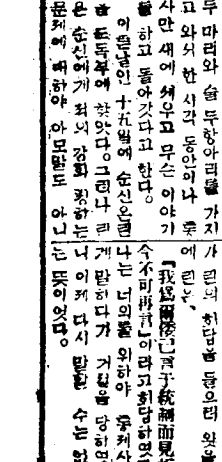 두 마리와 술 두항아리를 가지
고 와서 한 시각 동안이나 
사만 새에 세우고 무슨 이야기
를 하고 돌아갓다고 한다。
이튿날인 十五일에 순신은
도독부에 찾앗다。그러나
은 순신에게 적의 강화
문제에 대하야 아모말도 아니
가 린의 허답을 들으려
에 린은、
「我爲爾倭已言于統制而見
今不可再言」이라고 허답하엿
나는 너의를 위하야 통제사
게 말하다가 거절을 당하엿
니 이제 다시 말할 수는 업
는 뜻이엇다。